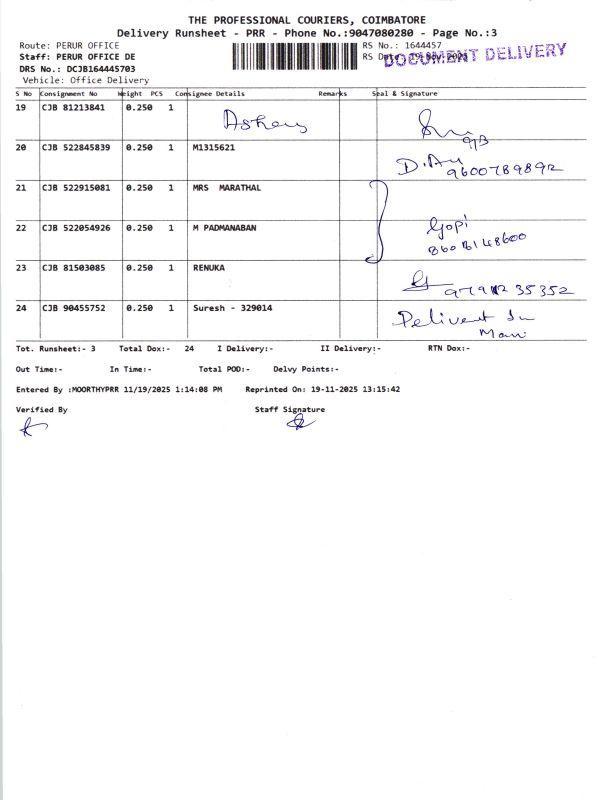 THE PROFESSIONAL COURIERS, COIMBATORE
Delivery Runsheet - PRR - Phone No.:9047080280 - Page No.:3
Route: PERUR OFFICE
RS No.: 1644457
Staff: PERUR OFFICE DE
RS Date
DOCUMENT DELIVERY
DRS No.: DCJB164445703
Vehicle: Office Delivery
S No Consignment No Weight PCS Consignee Details Remarks Seal & Signature
19 CJB 81213841 0.250 1
20 CJB 522845839 0.250 1 M1315621
9600789892
21 CJB 522915081 0.250 1 MRS MARATHAL
22 CJB 522054926 0.250 1 M PADMANABAN
Gopi
23 CJB 81503085 0.250 1 RENUKA
35352
24 CJB 90455752 0.250 1 Suresh - 329014
Mani
Tot. Runsheet:- 3 Total Dox:- 24 I Delivery:- II Delivery:- RTN Dox:-
Out Time:- In Time:- Total POD:- Delvy Points:-
Entered By :MOORTHYPRR 11/19/2025 1:14:08 PM Reprinted On: 19-11-2025 13:15:42
Verified By Staff Signature